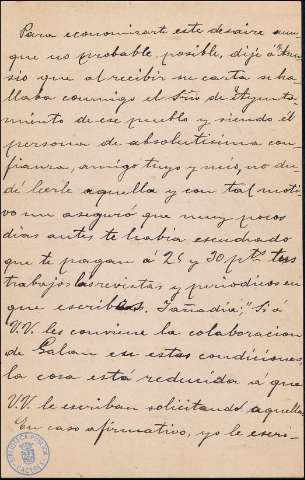 Para economizarte este desaire aun-
que no probable, posible, dije á
sio que al recibir su carta se ha-
llaba conmigo el Srio de Ayunta-
miento de ese pueblo y siendo él
persona de absolutisima con-
fianza, amigo tuyo y mio, no du-
dé leerle aquella y con tal moti-
vo me aseguró que muy pocos
dias antes te habia escuchado
que te pagan á 25 y 30 pts tus
trabajos las revistas y periodicos en
que escribes. Y añadia; "Si á
V.V. les conviene la colaboracion
de Galan en estas condiciones,
la cosa está reducida á que
V.V. le escriban solicitando aquella.
En caso afirmativo, yo le escri-
BIBLIOTECA PUBLICA
CACERES